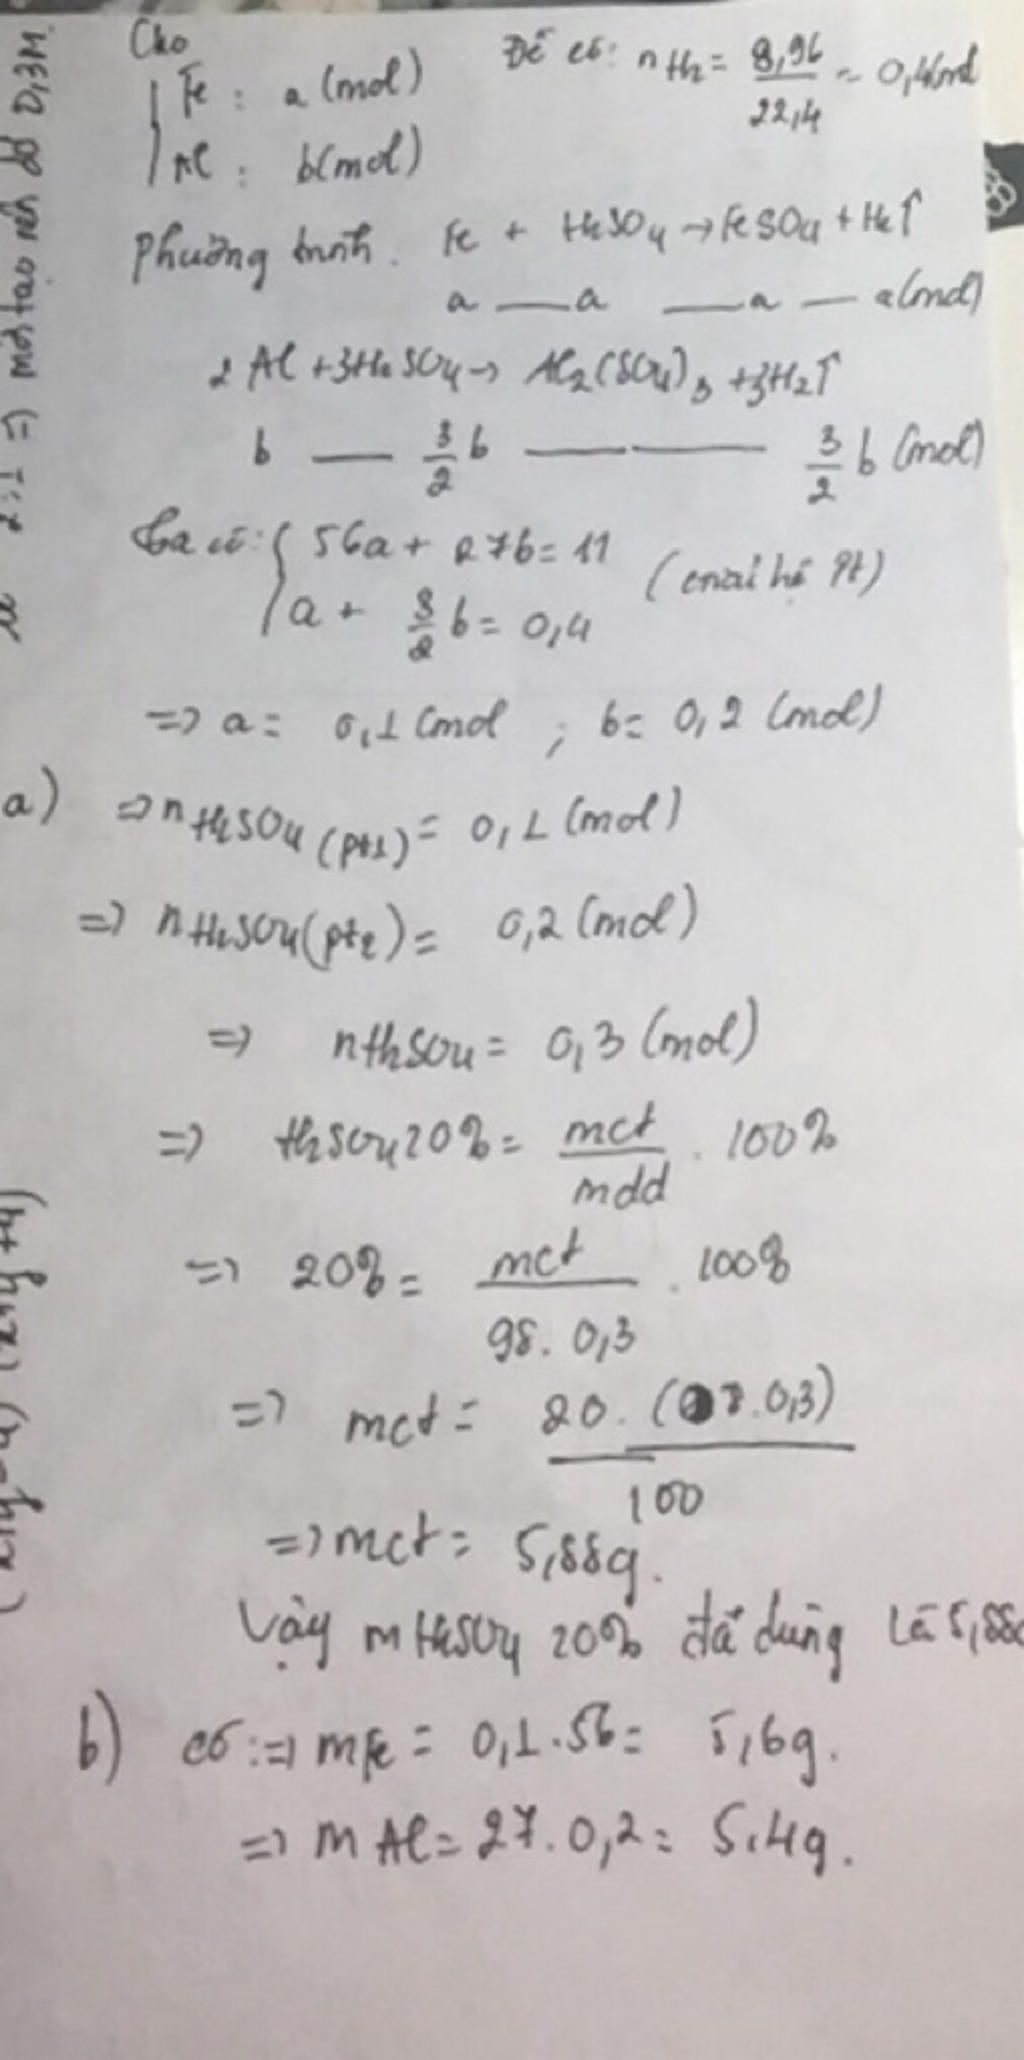 Cho
Fe : a (mol)
Al : b(mol)
Đề có: nH2 = 8,96 / 22,4 = 0,4 mol
Phương trình. Fe + H2SO4 → FeSO4 + H2↑
a — a — a — a (mol)
2Al + 3H2SO4 → Al2(SO4)3 + 3H2↑
b — 3/2 b —— 3/2 b (mol)
Ta có: { 56a + 27b = 11
a + 3/2 b = 0,4 hệ Pt)
=> a = 0,1 (mol ; b = 0,2 (mol)
a) => nH2SO4 (pt1) = 0,1 (mol)
=> nH2SO4(pt2) = 0,2 (mol)
=> nH2SO4 = 0,3 (mol)
=> H2SO4 20% = mct / mdd . 100%
=> 20% = mct / 98. 0,3 . 100%
=> mct = 20. (98.0,3) / 100
=> mct = 5,88g.
Vậy mH2SO4 20% đã dùng là 5,88g
b) có: => mFe = 0,1.56 = 5,6g.
=> mAl = 27.0,2 = 5.4g.
2:1 => mới tạo nên độ 0,3M.